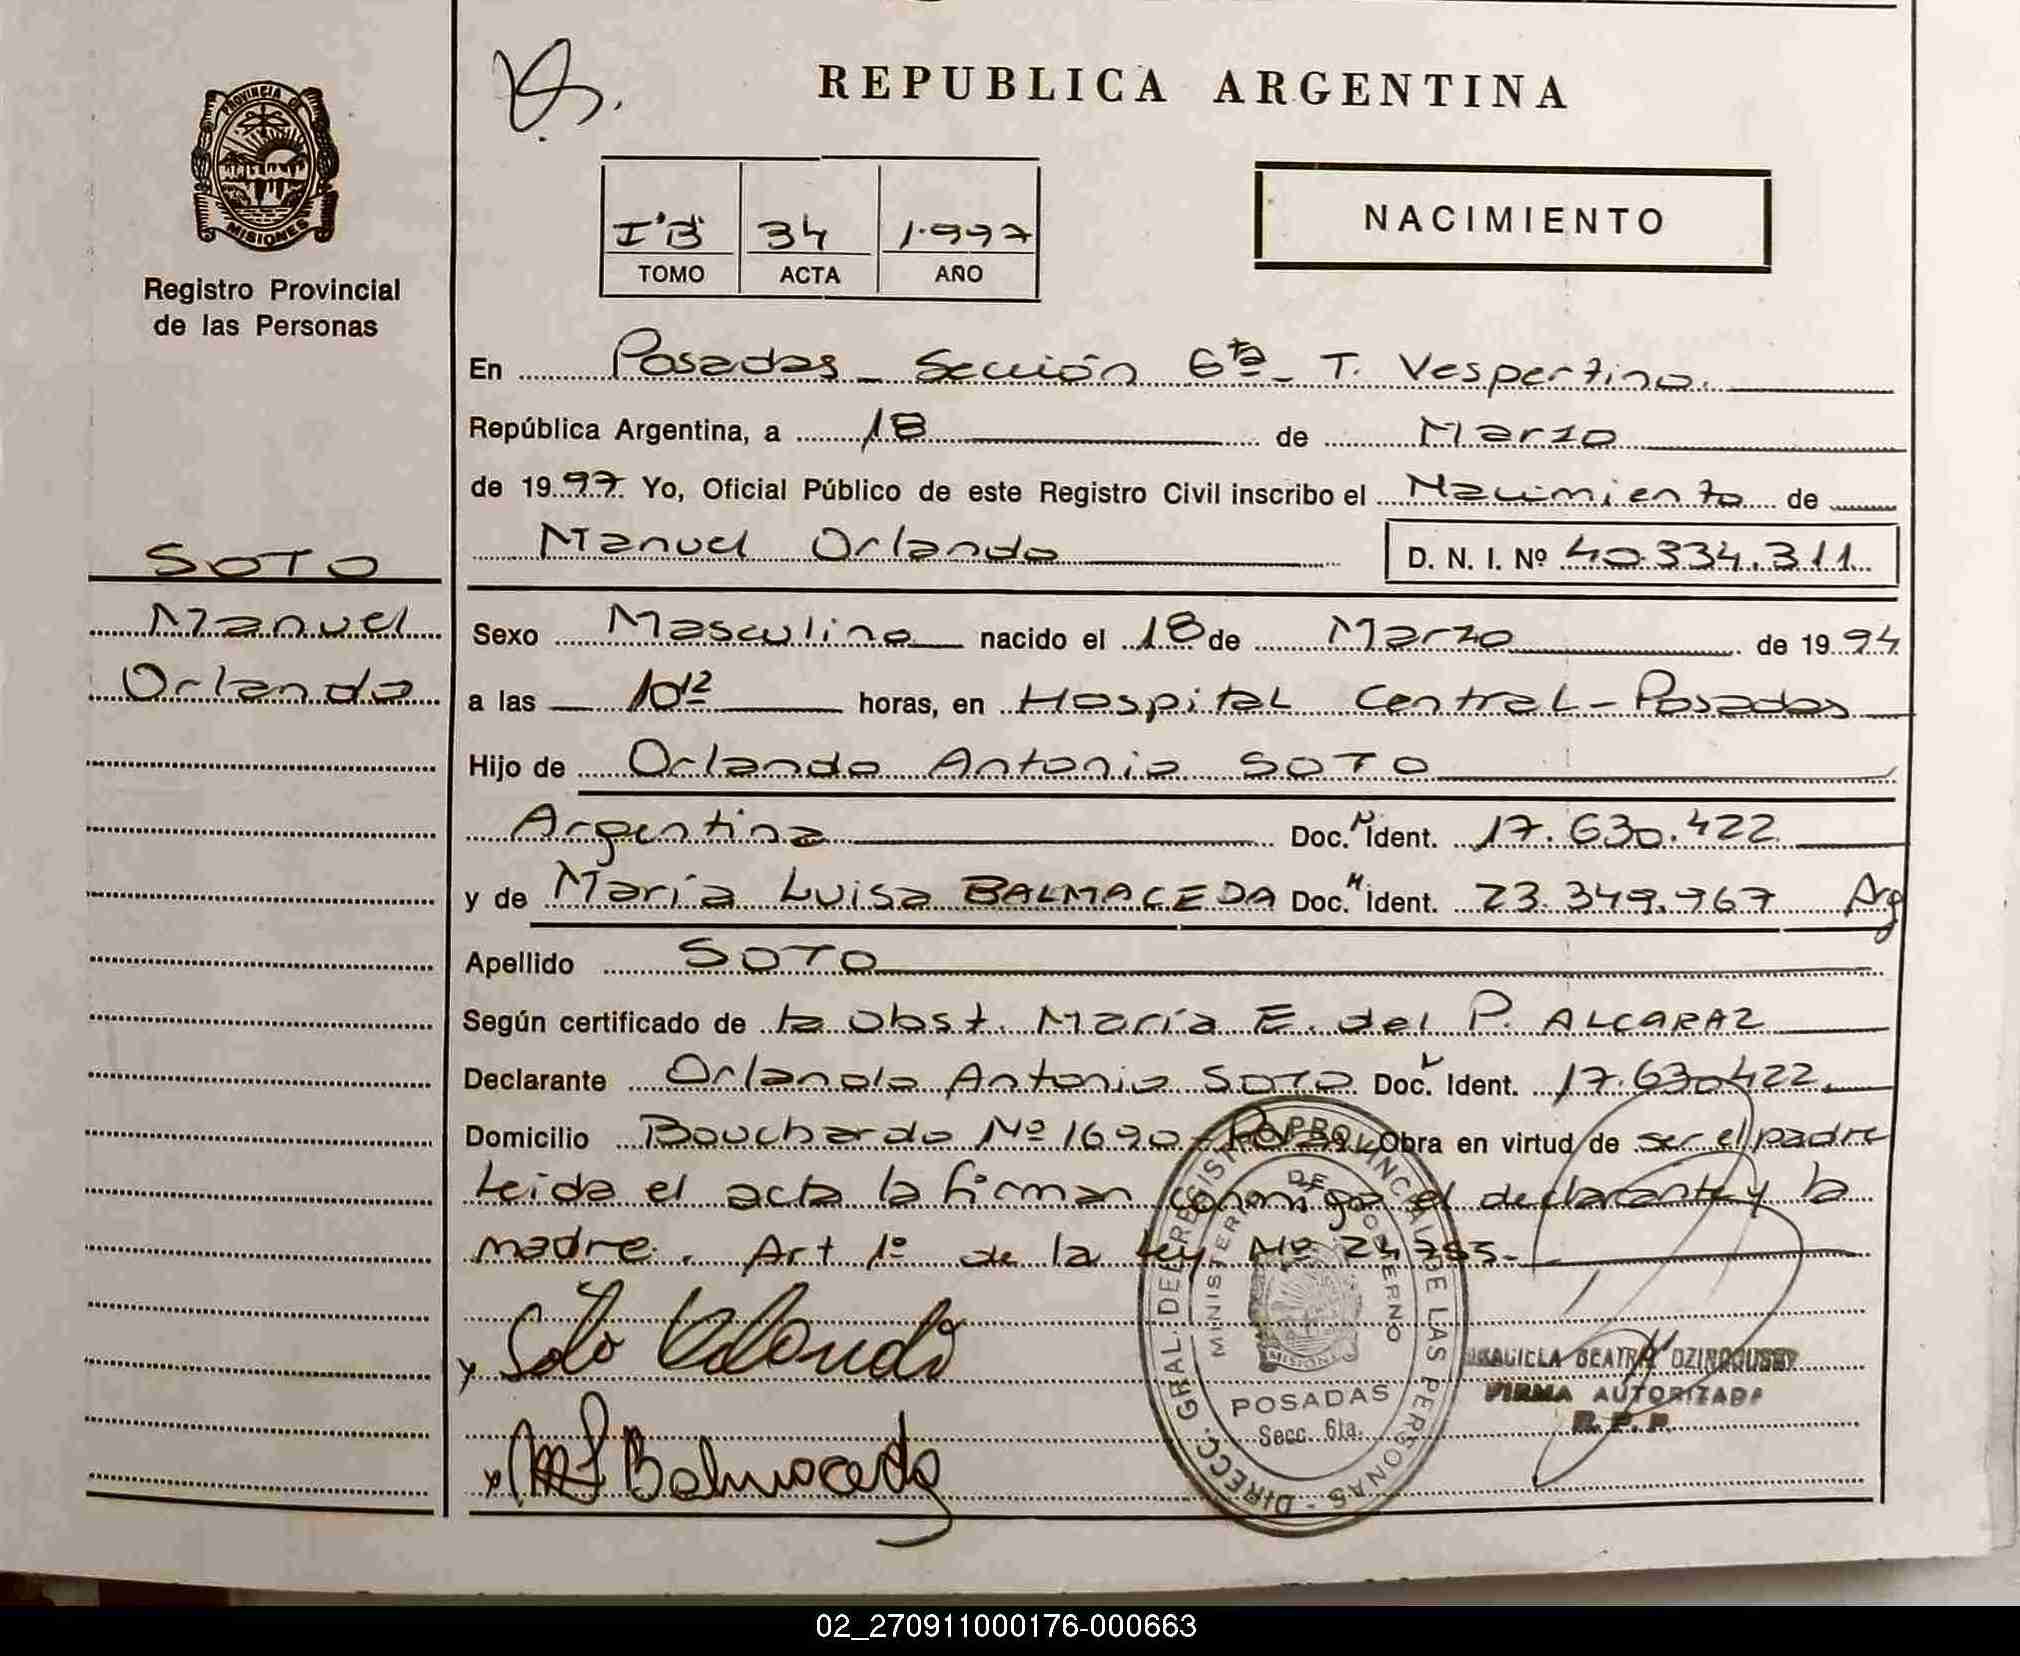 REPUBLICA ARGENTINA
PROVINCIA DE
MISIONES
Registro Provincial
de las Personas
I "B" 34 1.997
TOMO ACTA AÑO
NACIMIENTO
En Posadas - Sección 6ta - T. Vespertino.
República Argentina, a 18 de Marzo
de 1997. Yo, Oficial Público de este Registro Civil inscribo el Nacimiento de
Manuel Orlando D. N. I. Nº 40.334.311
SOTO
Manuel
Orlando
Sexo Masculino nacido el 18 de Marzo de 1994
a las 10 12 horas, en Hospital Central - Posadas
Hijo de Orlando Antonio SOTO
Argentina Doc. Ident. 17.630.422
y de María Luisa BALMACEDA Doc. Ident. 23.349.967 Arg
Apellido SOTO
Según certificado de la Obst. María E. del P. ALCARAZ
Declarante Orlando Antonio SOTO Doc. Ident. 17.630.422
Domicilio Bouchardo Nº 1690 - Obra en virtud de ser el padre
Leida el acta la firman conmigo el declarante y la
madre. Art 1º de la Ley Nº 24.755.
Soto Orlando
M L Balmaceda
DIRECC. GRAL. DEL REGISTRO PROVINCIAL DE LAS PERSONAS
MINISTERIO DE GOBIERNO
MISIONES
POSADAS
Secc. 6ta.
BEATRIZ
FIRMA AUTORIZADA
R.P.P.
02_270911000176-000663